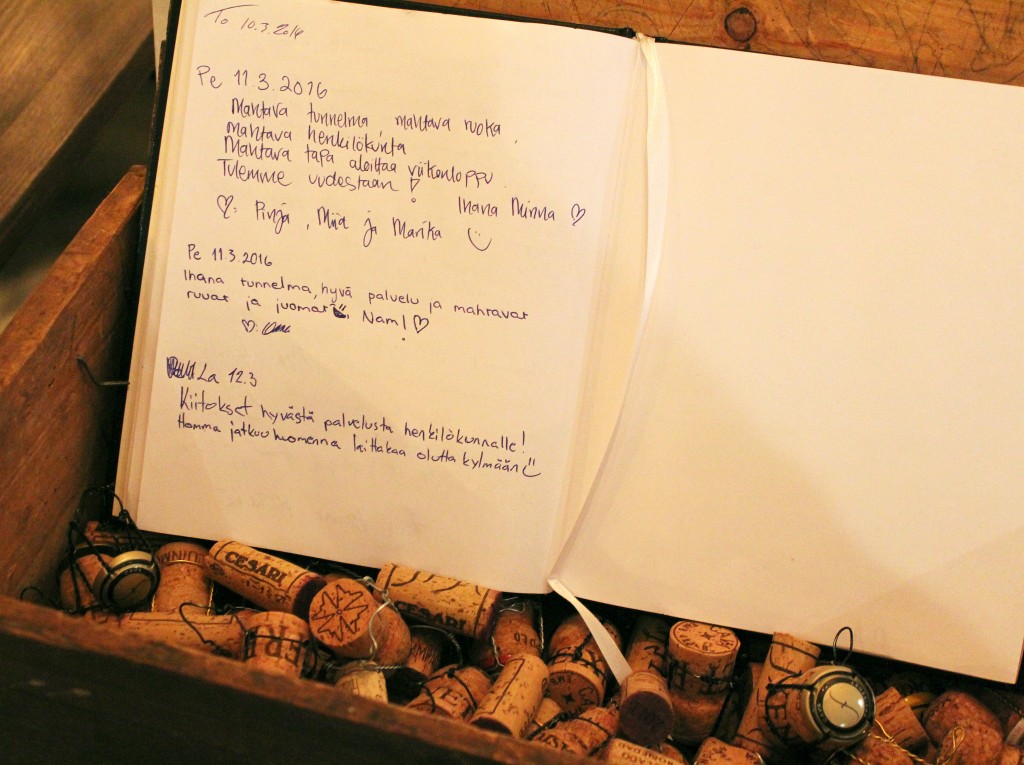 To 10.3.2016
Pe 11.3.2016
Mahtava tunnelma, mahtava ruoka,
mahtava henkilökunta
Mahtava tapa aloittaa viikonloppu.
Tulemme uudestaan!
Ihana Minna ♡
♡: Pinja, Miia ja Marika
Pe 11.3.2016
Ihana tunnelma, hyvä palvelu ja mahtavat
ruuat ja juomat Nam! ♡
La 12.3
Kiitokset hyvästä palvelusta henkilökunnalle!
Homma jatkuu huomenna laittakaa olutta kylmään
CESARI
CESARI